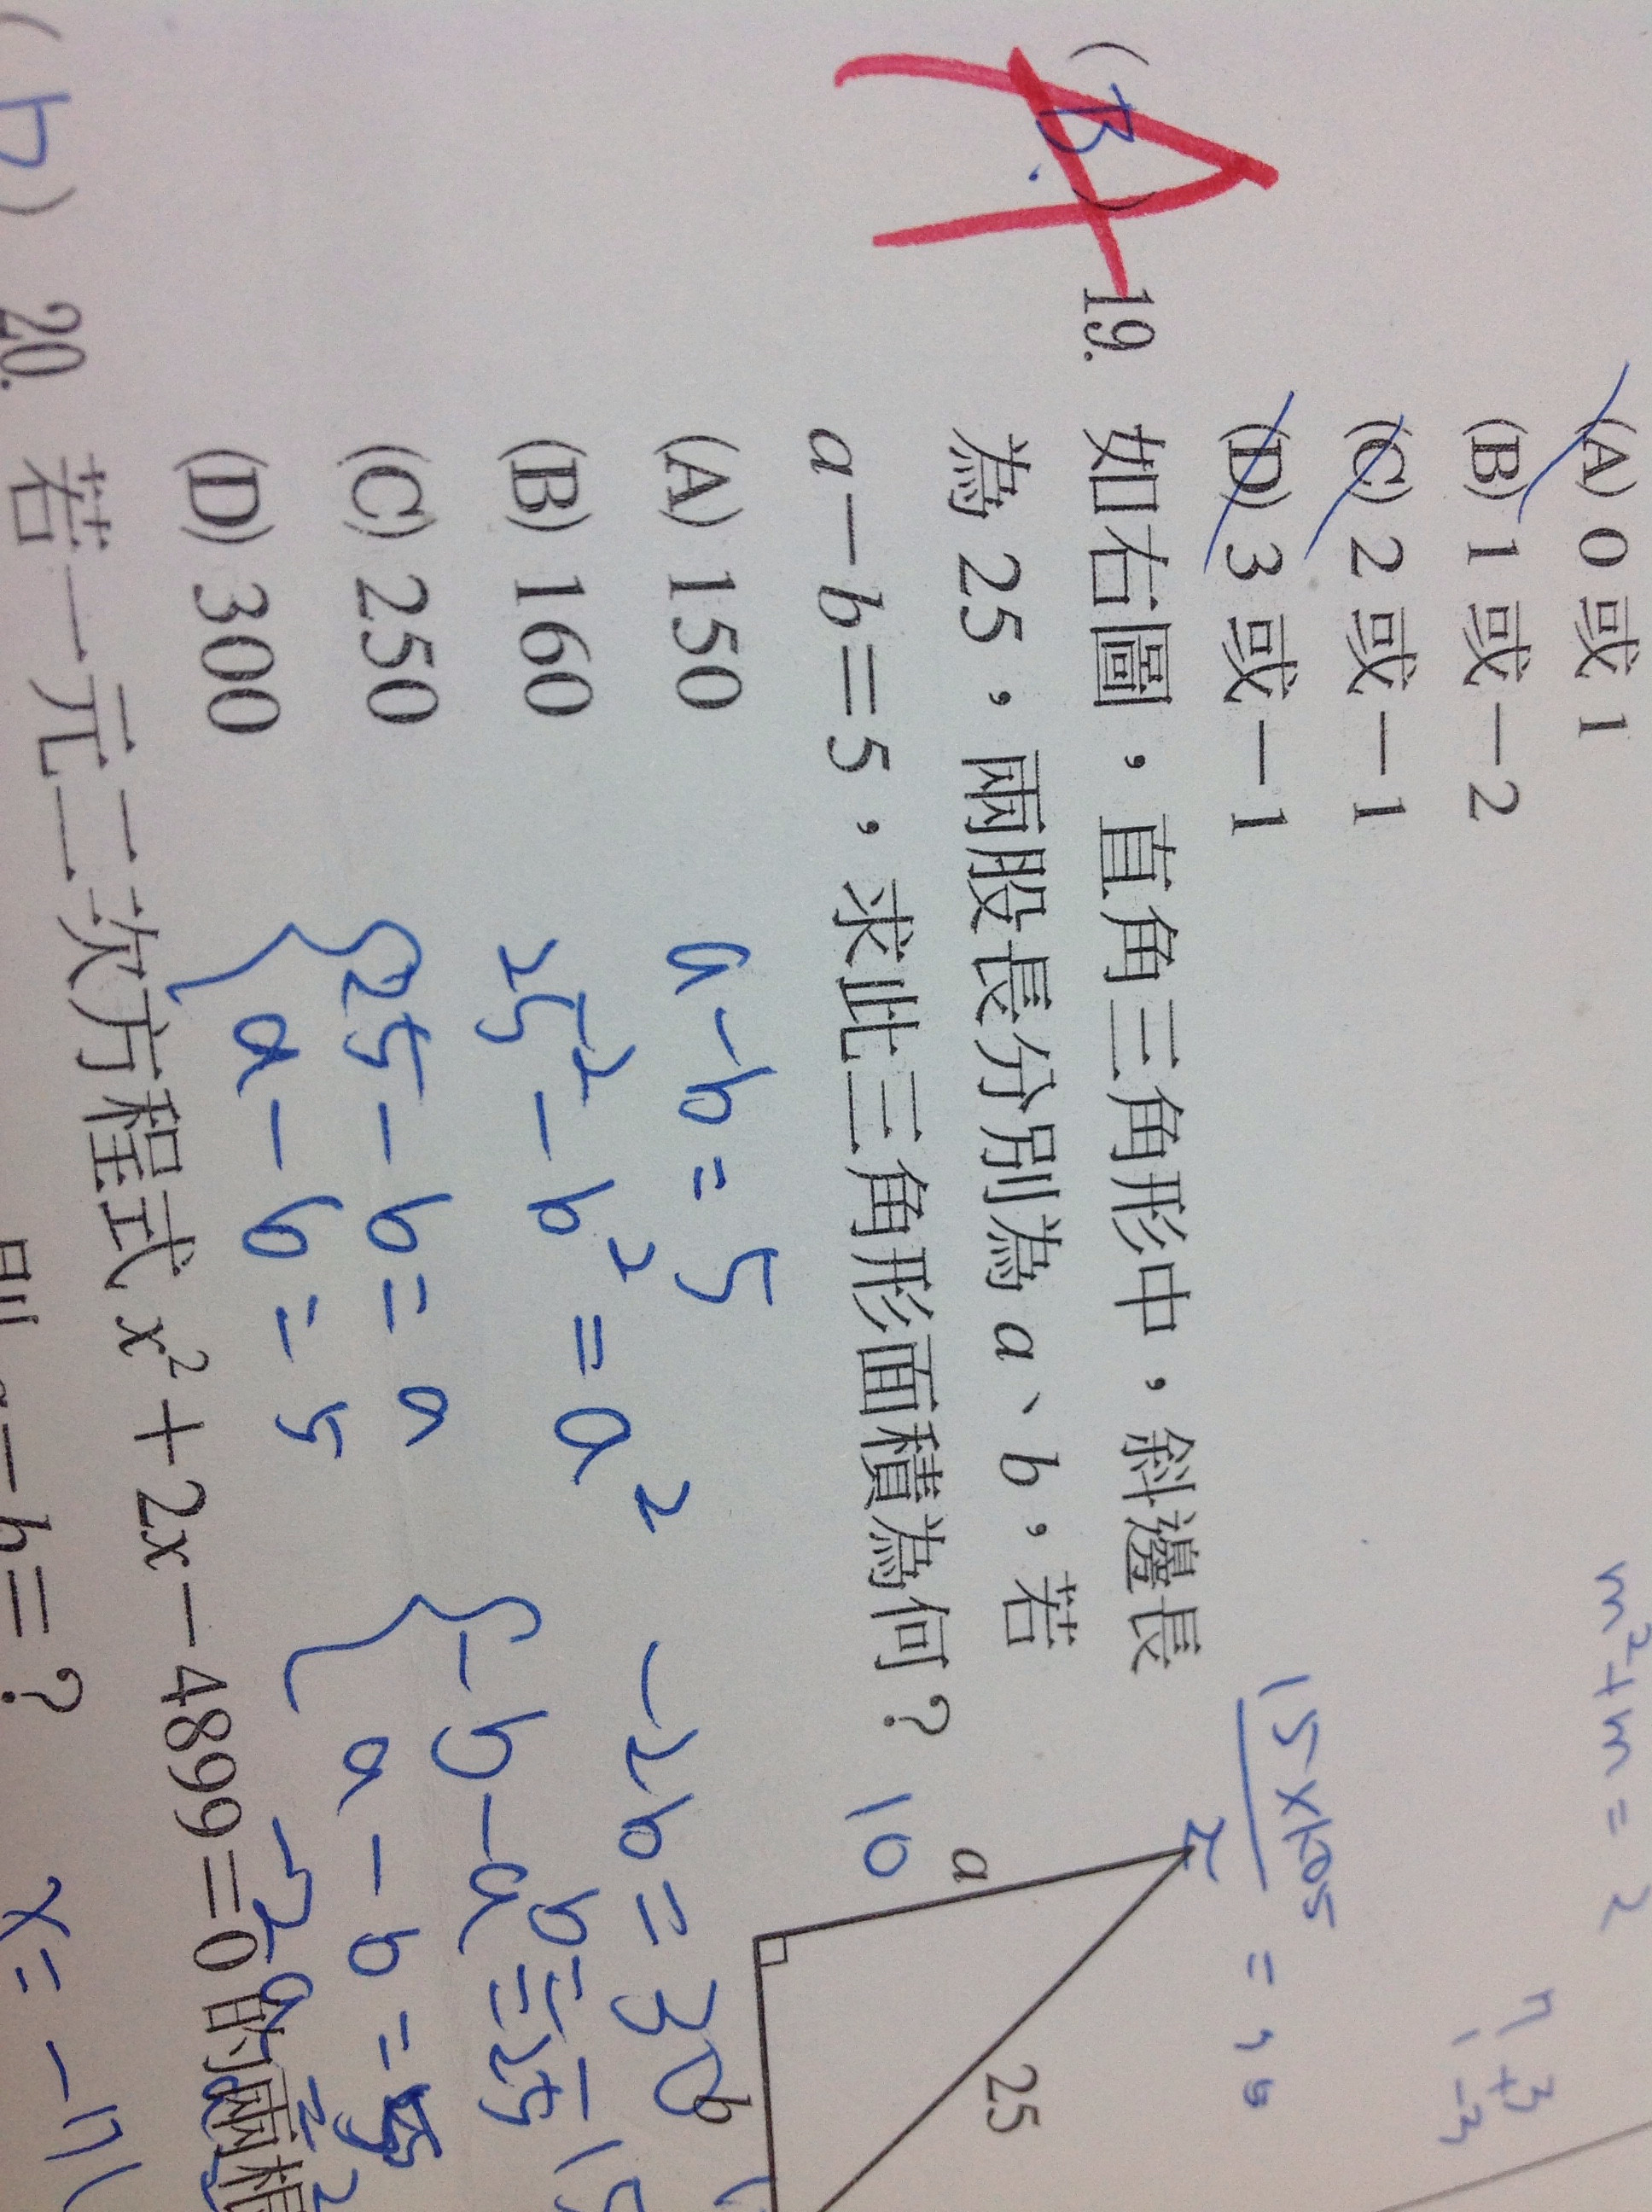 (A) 0 或 1
(B) 1 或 −2
(C) 2 或 −1
(D) 3 或 −1
m²+m=2
(B) 19. 如右圖，直角三角形中，斜邊長
為 25，兩股長分別為 a、b，若
a−b=5，求此三角形面積為何？
(A) 150
(B) 160
(C) 250
(D) 300
A
a
25
b
10
a-b=5
25²-b²=a²
25-b=a
a-b=5
-2b=30
-b-a=25
a-b=5
(D) 20. 若一元二次方程式 x²+2x−4899=0 的兩根
a−b=？
x=-71